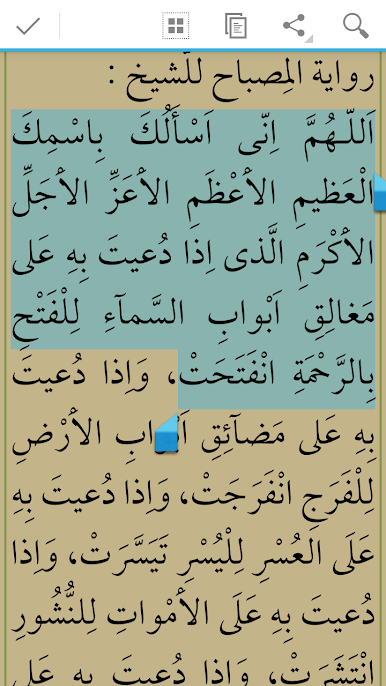 رواية المِصباح للشّيخ :
اَللّـهُمَّ اِنّى اَسْأَلُكَ بِاسْمِكَ
الْعَظيمِ الاَْعْظَمِ الاَْعَزِّ الاَْجَلِّ
الاَْكْرَمِ الَّذى اِذا دُعيتَ بِهِ عَلى
مَغالِقِ اَبْوابِ السَّمآءِ لِلْفَتْحِ
بِالرَّحْمَةِ انْفَتَحَتْ، وَاِذا دُعيتَ
بِهِ عَلى مَضآئِقِ اَبْوابِ الاَْرْضِ
لِلْفَرَجِ انْفَرَجَتْ، وَاِذا دُعيتَ بِهِ
عَلَى العُسْرِ لِلْيُسْرِ تَيَسَّرَتْ، وَاِذا
دُعيتَ بِهِ عَلَى الاَْمْواتِ لِلنُّشُورِ
انْتَشَرَتْ، وَاِذا دُعيتَ بِهِ عَلى